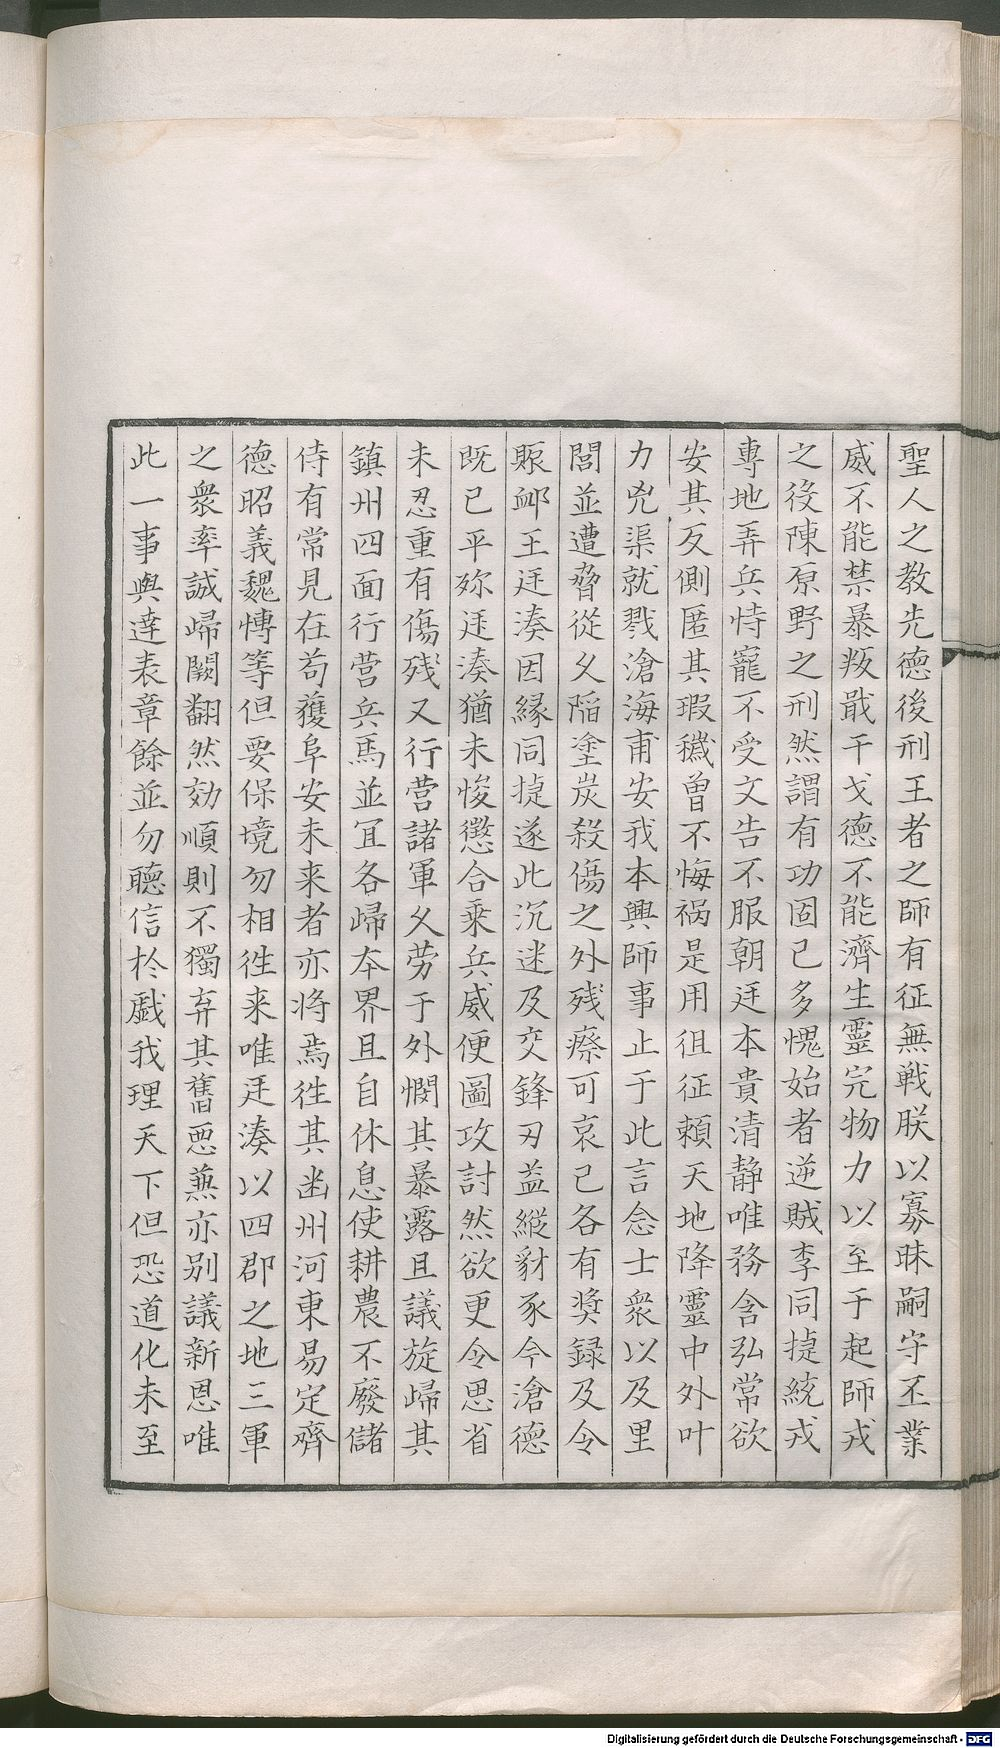 聖人之教先德後刑王者之師有征無戦朕以寡昧嗣守丕業
威不能禁暴叛戢干戈德不能濟生靈完物力以至于起師戎
之役陳原野之刑然謂有功固已多愧始者逆賊李同捷統戎
專地弄兵恃寵不受文告不服朝廷本貴清静唯務含弘常欲
安其反側匿其瑕穢曽不悔禍是用徂征賴天地降靈中外叶
力兇渠就戮滄海甫安我本興師事止于此言念士衆以及里
閭並遭脅從乆陷塗炭殺傷之外残瘵可哀已各有奨録及令
賑衈王廷湊因縁同捷遂此沉迷及交鋒刃益縱豺豕今滄德
既已平殄廷湊猶未悛懲合乗兵威便圖攻討然欲更令思省
未忍重有傷残又行营諸軍乆劳于外憫其暴露且議旋歸其
鎮州四面行营兵馬並冝各歸本界且自休息使耕農不廢儲
侍有常見在苟獲阜安未来者亦将焉徃其幽州河東易定齊
德昭義魏博等但要保境勿相徃来唯廷湊以四郡之地三軍
之衆率誠歸闕翻然効順則不獨弃其舊惡兼亦别議新恩唯
此一事與達表章餘並勿聽信於戯我理天下但恐道化未至
Digitalisierung gefördert durch die Deutsche Forschungsgemeinschaft - DFG